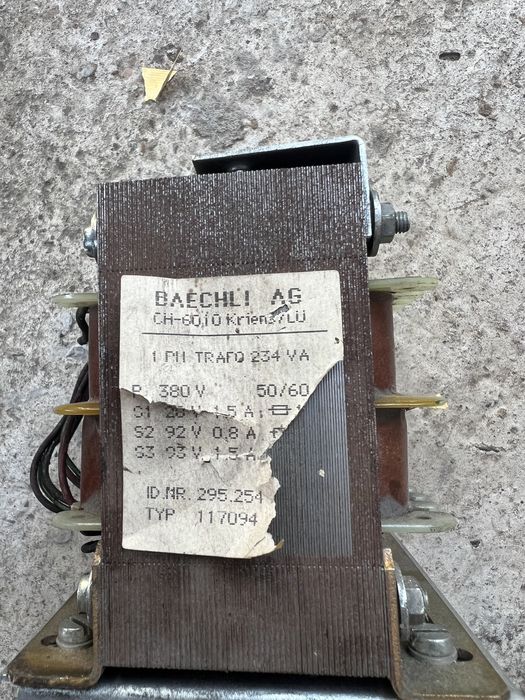 BAECHLI AG
CH-6010 Kriens/LU
1 PH TRAFO 234 VA
P 380 V 50/60
V 1.5 A
S2 92 V 0.8 A
S3 V 1.5 A
ID.NR. 295.254
TYP 117094